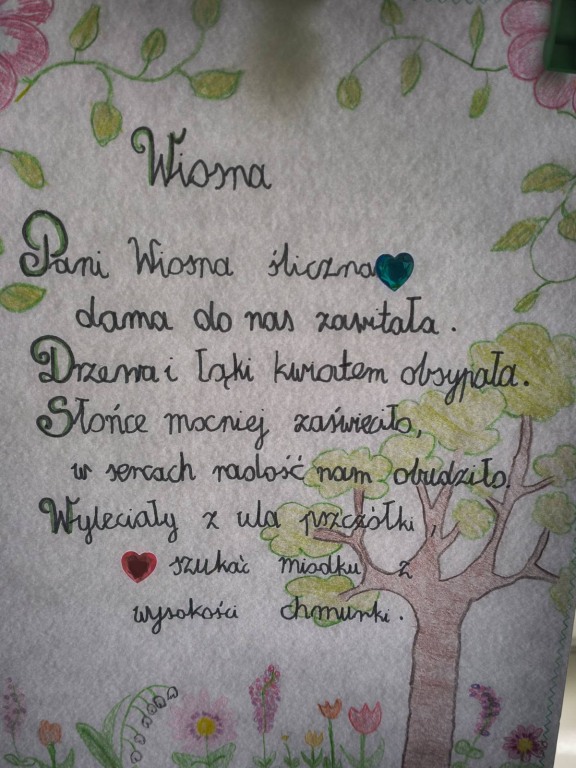 Wiosna
Pani Wiosna śliczna
dama do nas zawitała.
Drzewa i łąki kwiatem obsypała.
Słońce mocniej zaświeciło,
w sercach radość nam obudziło.
Wyleciały z ula pszczółki,
szukać miodku z
wysokości chmurki.